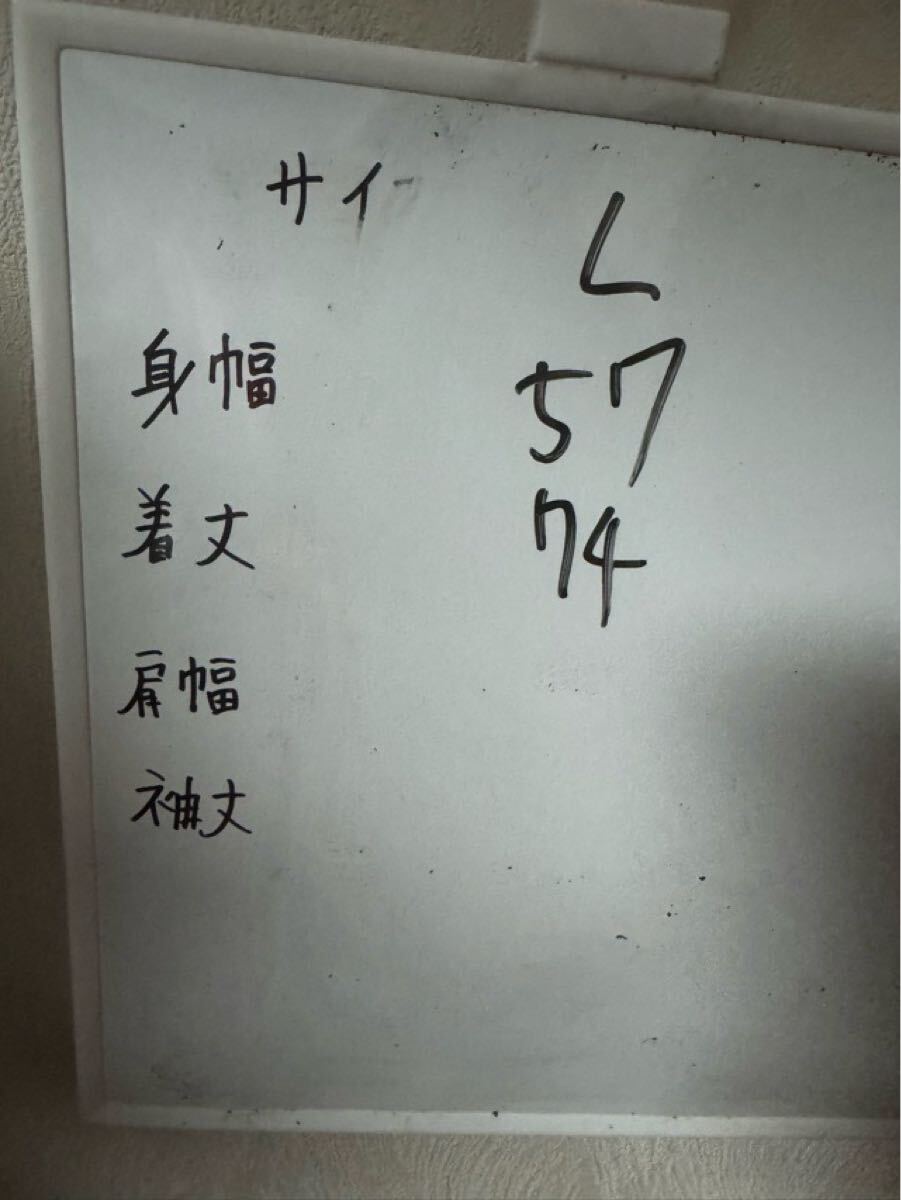 サイ L
身幅 57
着丈 74
肩幅
袖丈